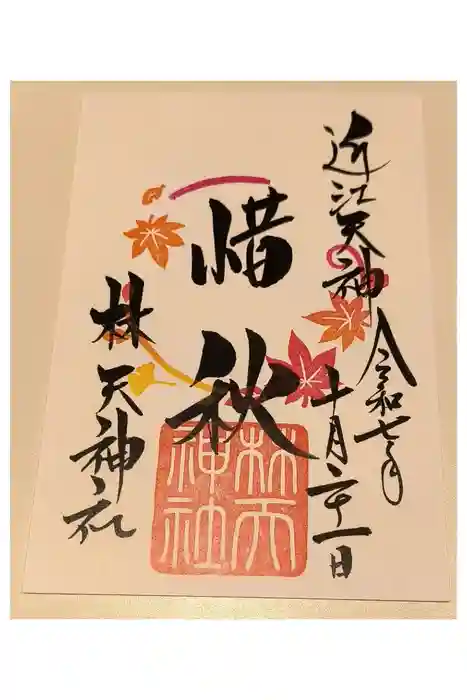 近江天神
令和七年
十月二十一日
惜秋
林天神社
林天
神社